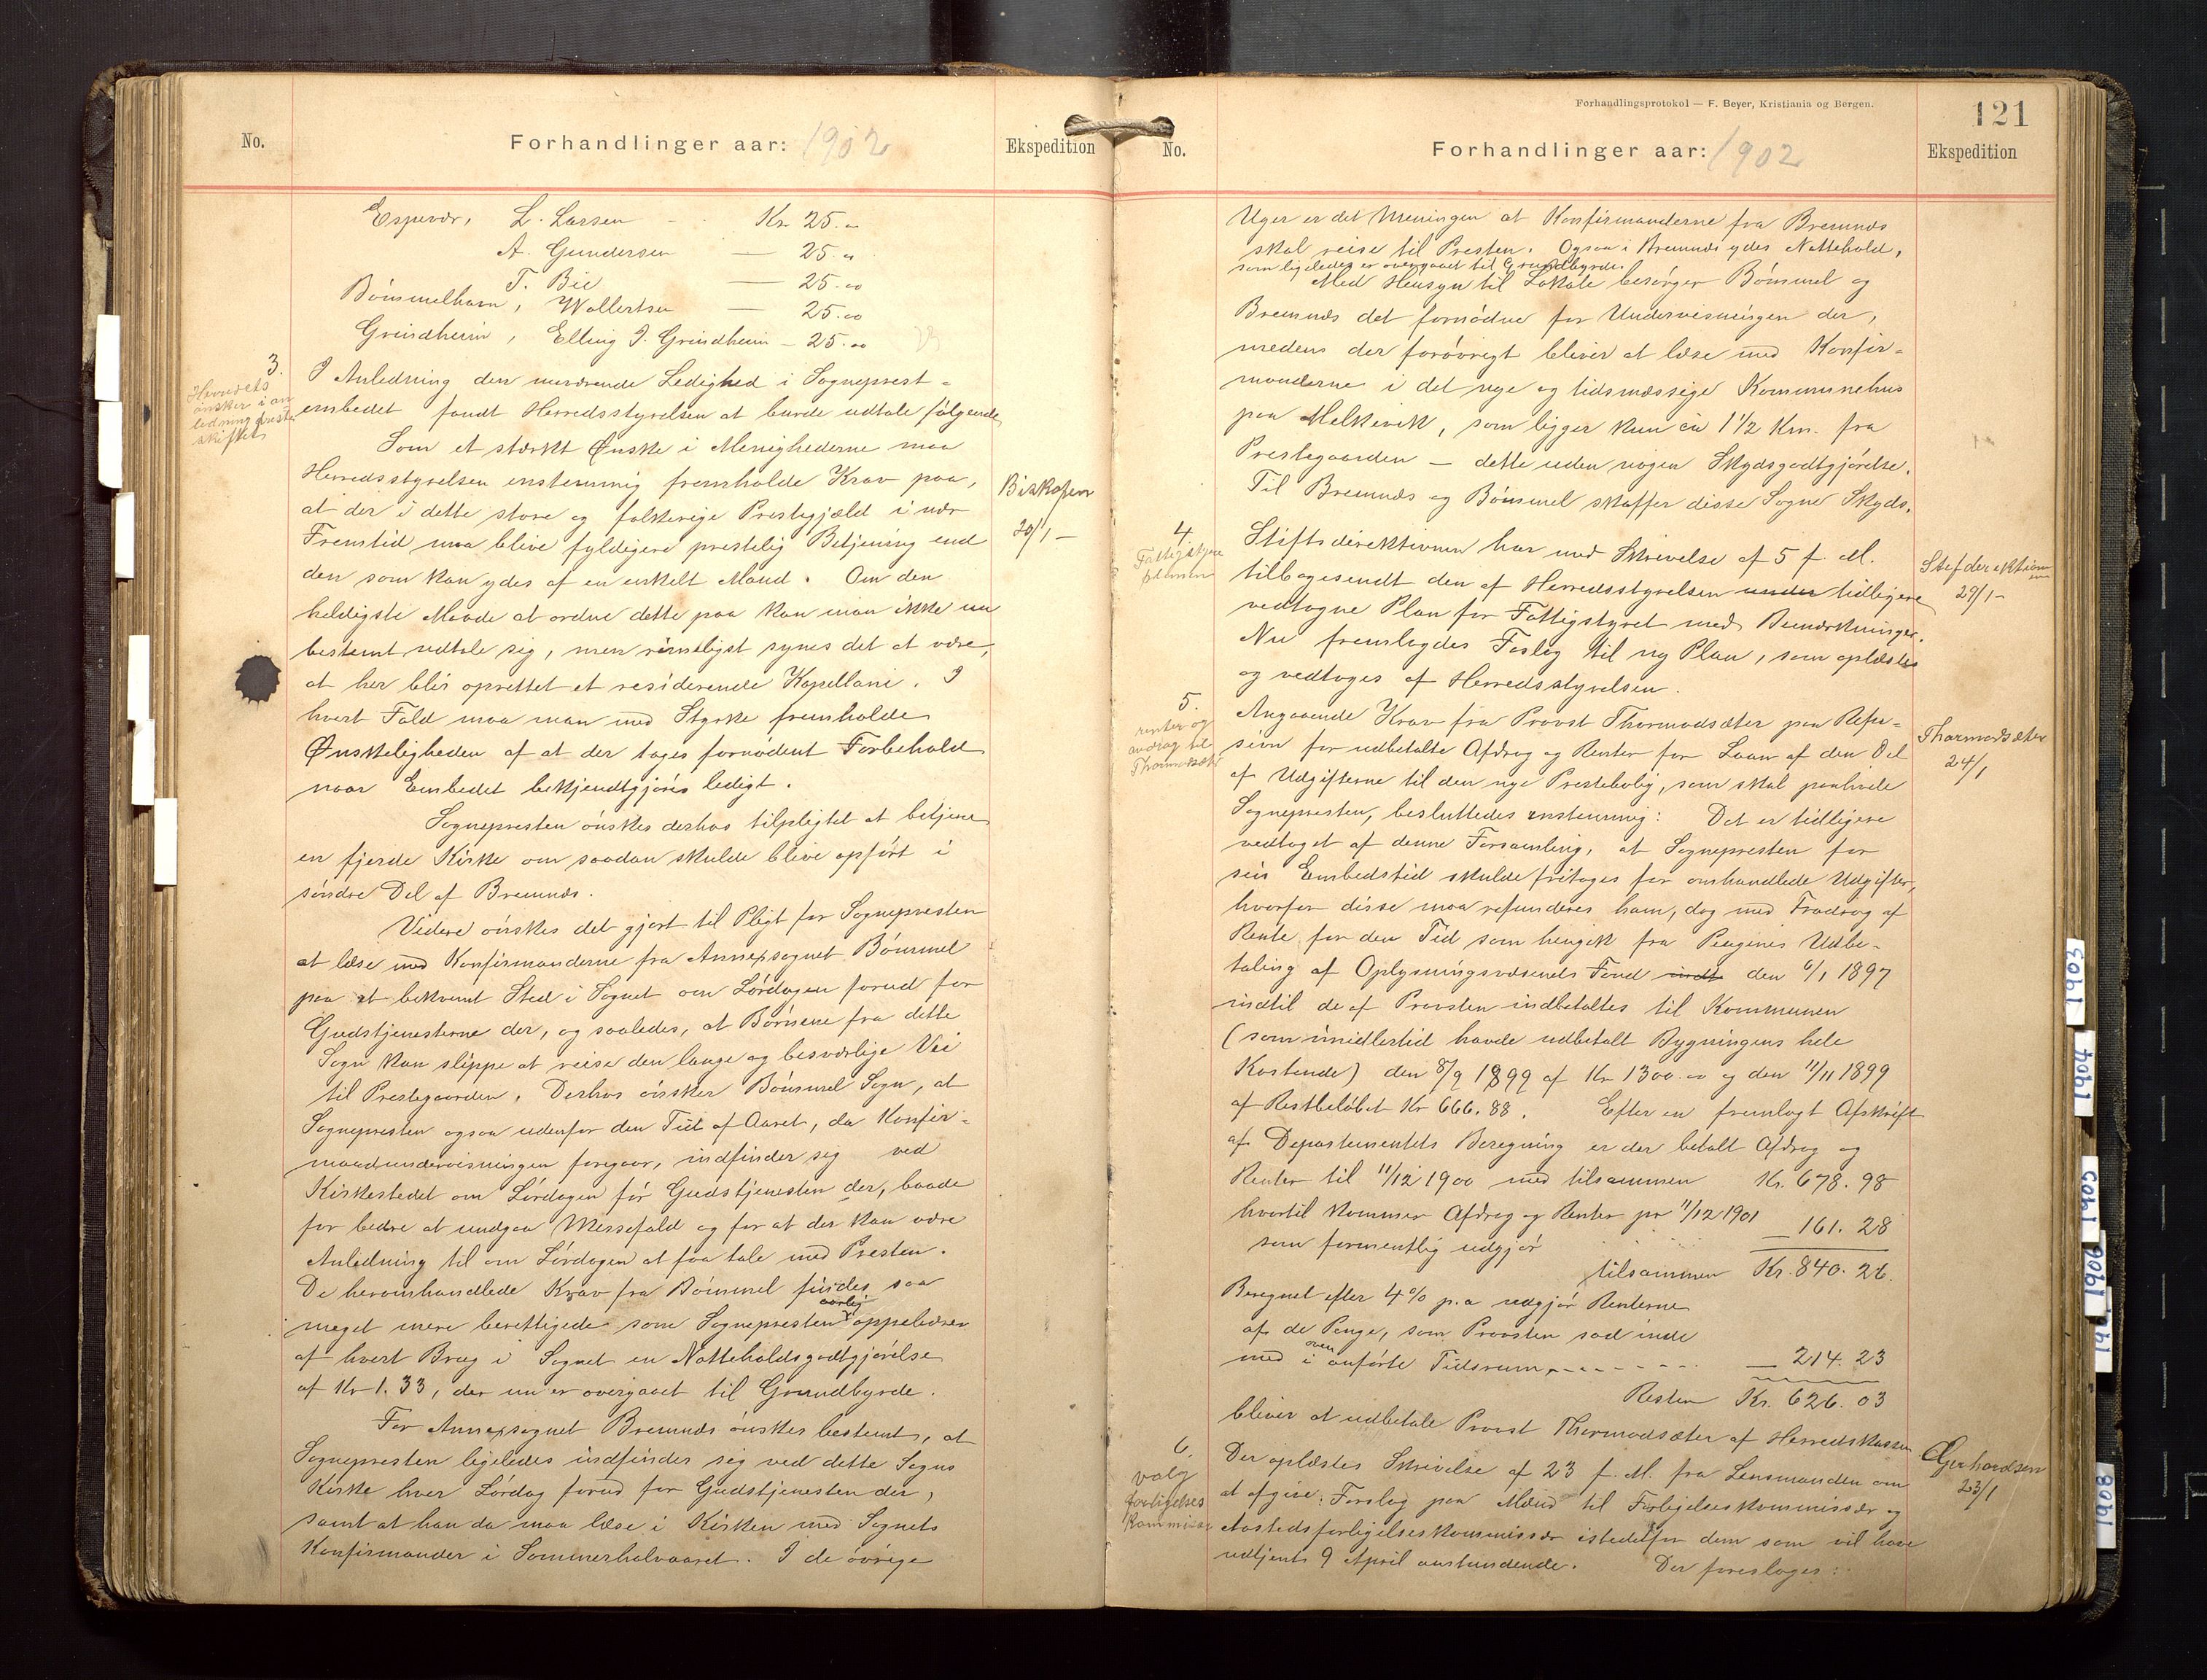 No.
Forhandlinger aar: 1902
Ekspedition
Espevær, L. Larsen - Kr 25.00
A. Gundersen — 25.00
T. Bie — 25.00
Bømmelhavn, Wollertsen — 25.00
Grindheim, Elling I. Grindheim - 25.00
3.
Herredets
ønsker i an
ledning preste
skiftet
I Anledning den nuværende Ledighed i Sogneprest-
embedet fandt Herredsstyrelsen at burde udtale følgende
Som et stærkt Ønske i Menighederne maa
Herredsstyrelsen enstemmig fremholde Krav paa,
at der i dette store og folkerige Prestegjæld i nær
Fremtid maa blive fyldigere prestelig Betjening end
den som kan ydes af en enkelt Mand. Om den
heldigste Maade at ordne dette paa kan man ikke nu
bestemt udtale sig, men rimeligst synes det at være,
at her blir oprettet et residerende Kapellani. I
hvert Fald maa man med Styrke fremholde
Ønskeligheden af at der tages fornødent Forbehold
naar Embedet bekjendtgjøres ledigt.
Biskopen
20/1 -
Sognepresten ønskes derhos tilpligtet at betjene
en fjerde Kirke om saadan skulde blive opført i
søndre Del af Bremnæs.
Videre ønskes det gjort til Pligt for Sognepresten
at læse med Konfirmanderne fra Annexsognet Bømmel
paa et bekvemt Sted i Sognet om Lørdagen forud for
Gudstjenesterne der, og saaledes, at Børnene fra dette
Sogn kan slippe at reise den lange og besværlige Vei
til Prestegaarden. Derhos ønsker Bømmel Sogn, at
Sognepresten ogsaa udenfor den Tid af Aaret, da Konfir-
mandundervisningen foregaar, indfinder sig ved
Kirkestedet om Lørdagen før Gudstjenesten der, baade
for bedre at undgaa Messefald og for at der kan være
Anledning til om Lørdagen at faa tale med Presten.
De heromhandlede Krav fra Bømmel findes saa
meget mere berettigede som Sognepresten aarlig oppebærer
af hvert Brug i Sognet en Natteholdsgodtgjørelse
af Kr 1.33, der nu er overgaaet til Grundbyrde.
For Annexsognet Bremnæs ønskes bestemt, at
Sognepresten ligeledes indfinder sig ved dette Sogns
Kirke hver Lørdag forud for Gudstjenesten der,
samt at han da maa læse i Kirken med Sognets
Konfirmander i Sommerhalvaaret. I de øvrige
Forhandlingsprotokol — F. Beyer, Kristiania og Bergen.
121
No.
Forhandlinger aar: 1902
Ekspedition
Uger er det Meningen at Konfirmanderne fra Bremnæs
skal reise til Presten. Ogsaa i Bremnæs ydes Nattehold,
som ligeledes er overgaaet til Grundbyrde.
Med Hensyn til Lokale besørger Bømmel og
Bremnæs det fornødne for Undervisningen der,
medens der forøvrigt bliver at læse med Konfir-
manderne i det nye og tidsmæssige Kommunehus
paa Melkevik, som ligger kun ca 1 1/2 Km. fra
Prestegaarden — dette uden nogen Skydsgodtgjørelse.
Til Bremnæs og Bømmel skaffer disse Sogne Skyds.
4.
Fattigstyre
planen
Stiftsdirektionen har med Skrivelse af 5 f. M.
tilbagesendt den af Herredsstyrelsen under tidligere
vedtagne Plan for Fattigstyret med Bemærkninger.
Nu fremlagdes Forslag til ny Plan, som oplæstes
og vedtoges af Herredsstyrelsen.
Stifdirektion
en
29/1 -
5.
renter og
avdrag til
Thormodsæter
Angaaende Krav fra Provst Thormodsæter paa Refu-
sion for udbetalte Afdrag og Renter for Laan af den Del
af Udgifterne til den nye Prestebolig, som skal paahvile
Sognepresten, besluttedes enstemmig: Det er tidligere
vedtaget af denne Forsamling, at Sognepresten for
sin Embedstid skulde fritages for omhandlede Udgifter,
hvorfor disse maa refunderes ham, dog med Fradrag af
Rente for den Tid som hengik fra Pengenes Udbe-
taling af Oplysningsvæsenets Fond indt den 6/1 1897
indtil de af Provsten indbetaltes til Kommunen
(som imidlertid havde udbetalt Bygningens hele
Kostende) den 8/9 1899 af Kr 1300.00 og den 11/11 1899
af Restbeløbet Kr 666.88. Efter en fremlagt Afskrift
af Departementets Beregning er der betalt Afdrag og
Renter til 11/12 1900 med tilsammen Kr. 678.98
hvortil kommer Afdrag og Renter pr 11/12 1901
som formentlig udgjør — 161.28
tilsammen Kr. 840.26.
Beregnet efter 4% p.a udgjør Renterne
af de Penge, som Provsten sad inde
med i ovenanførte Tidsrum - - - - — 214.23
Resten Kr. 626.03
bliver at udbetale Provst Thormodsæter af Herredskassen
Thormodsæter
24/1
6.
valg
forligelses
kommissær
Der oplæstes Skrivelse af 23 f. M. fra Lensmanden om
at afgive Forslag paa Mænd til Forligelseskommissær og
Aastedsforligelseskommissær istedetfor dem som vil have
udtjent 9 April anstundende. Der foresloges:
Gerhardsen
23/1
1903
1904
1905
1906
1908